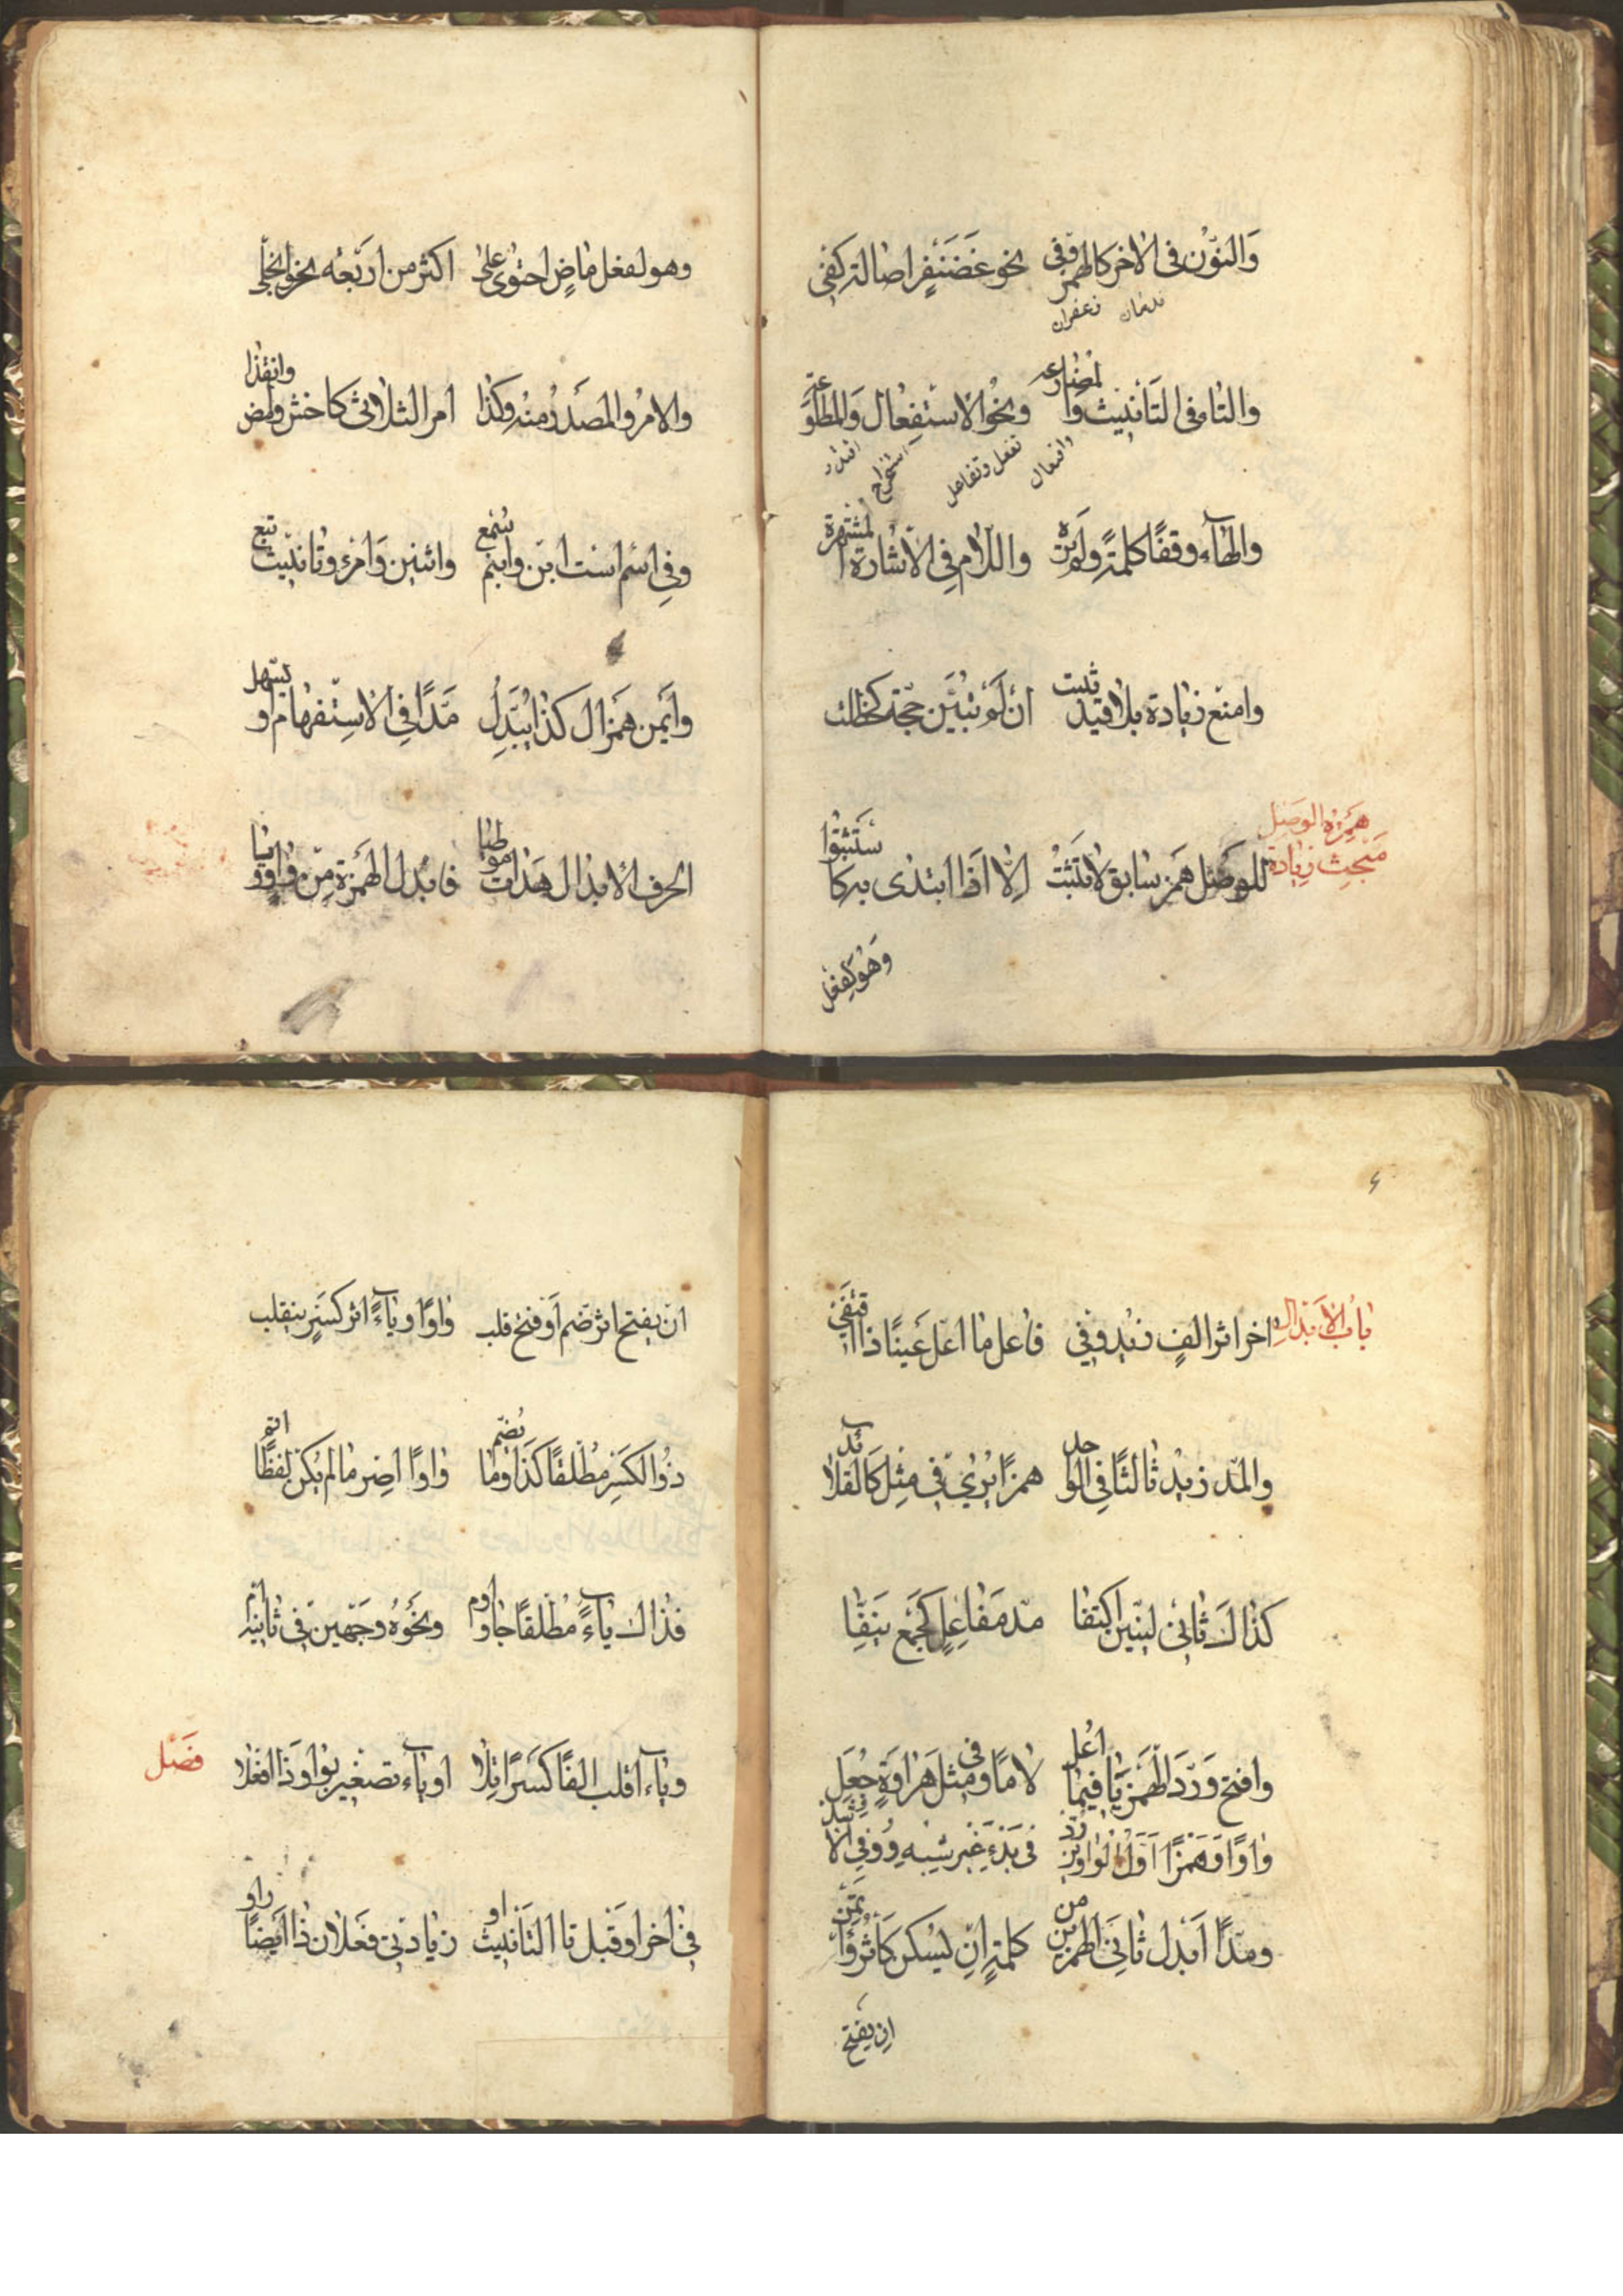 وَالنّوْن فى الاخر كالهمز وفى نحو غَضَنْفَرٍ اصالة كفى
ندمان زعفران
والتاء فى التَأنيث والمضارعه ونحو الاستفعال وَالمطاوعة
وانفعال تفعل وتفاعل استخراج
والهآء وقفًا كلمة ولم تره واللّام فى الاشارة المشتهرة
وامنع زيادة بلا قيد ثبت ان لم تبيّن حجة كحظلت
هَمزة الوصْل
مَبحث زيادة
للوصْل همز سابق لا يَثبت اِلّا اذا ابتدى به كاسْتثبتوا
وَهُو لفعل
وهو لفعل ماضٍ احتوى على اكثر من اربَعه نحو انجلى
والامرُ والمصدرُ منه وكذا امر الثلاثى كاخش وامض وانفذا
وفى اسم است ابن وابنم سُمع واثنين وَامرءٍ وتانيث تبع
وايمن همز ال كذا يُبدل مَدًّا فى الاستفهام او يسهل
احرف الابدال هدات موطيا فابدل الهمزة مِن واوٍ ويا
بابُ الابدال
اخر اثر الفٍ زيد وفى فاعل ما اعلّ عَينًا ذا اقتفى
والمدّ زيد ثالثًا فى الواحد همزًا يُرى فى مثل كالقلائد
كذاك ثانى لينين اكتنفا مدّ مَفاعل كجمع نيّفا
وافتح وَرُدّ الهمز يَا فيما اعلّ لامًا وفى مثل هراوةٍ جُعل
واوًا وَهمزًا اوّل الواوين رُدّ فى بَدءِ غير شبه وُوفى الاشد
ومدًّا ابدل ثانى الهمزين من كلمة اِنْ يسكن كآثر وَائتمن
ان يفتح
ان يفتح اثر ضم اَو فتح قلب واوًا وياءً اثر كسرٍ ينقلب
ذُو الكسر مُطلقًا كذا وما يُضم واوًا اصر ما لم يكن لفظًا اتم
فذاك ياءً مُطلقًا جا واوم ونحوُهُ وجهين فى ثانيه ام
فصْل
وياء اقلب الفًا كسَرًا تلا او ياء تصغير بواو ذا افعلا
فى اخر او قبل تا التانيث او زيادتى فعلان ذا ايضًا راو